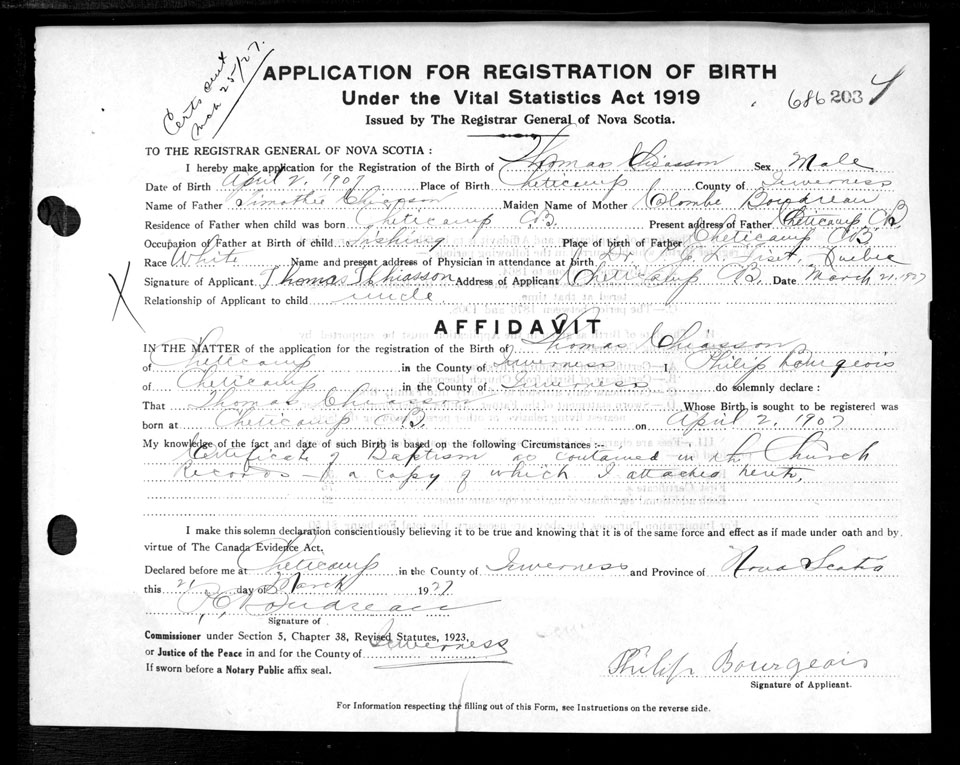 Certs sent
Mch 25/27.
APPLICATION FOR REGISTRATION OF BIRTH
Under the Vital Statistics Act 1919
Issued by The Registrar General of Nova Scotia.
686 203 Y
TO THE REGISTRAR GENERAL OF NOVA SCOTIA :
I hereby make application for the Registration of the Birth of Thomas Chiasson Sex Male
Date of Birth April 2, 1907 Place of Birth Cheticamp County of Inverness
Name of Father Timothie Chiasson Maiden Name of Mother Colombe Boudreau
Residence of Father when child was born Cheticamp C.B. Present address of Father Cheticamp C.B.
Occupation of Father at Birth of child Fishing Place of birth of Father Cheticamp C.B.
Race White Name and present address of Physician in attendance at birth Dr. L. Quebec
Signature of Applicant Thomas Chiasson Address of Applicant Cheticamp C.B. Date March 21, 1927
X Relationship of Applicant to child uncle
AFFIDAVIT
IN THE MATTER of the application for the registration of the Birth of Thomas Chiasson
of Cheticamp in the County of Inverness I, Philip Bourgeois
of Cheticamp in the County of Inverness do solemnly declare :
That Thomas Chiasson Whose Birth is sought to be registered was
born at Cheticamp C.B. on April 2, 1907
My knowledge of the fact and date of such Birth is based on the following Circumstances :-
Certificate of Baptism as contained in the Church
Records - a copy of which I attached hereto,
I make this solemn declaration conscientiously believing it to be true and knowing that it is of the same force and effect as if made under oath and by
virtue of The Canada Evidence Act.
Declared before me at Cheticamp in the County of Inverness and Province of Nova Scotia
this 21 day of March 1927
Boudreau
Signature of
Commissioner under Section 5, Chapter 38, Revised Statutes, 1923,
or Justice of the Peace in and for the County of Inverness
If sworn before a Notary Public affix seal.
Philip Bourgeois
Signature of Applicant.
For Information respecting the filling out of this Form, see Instructions on the reverse side.